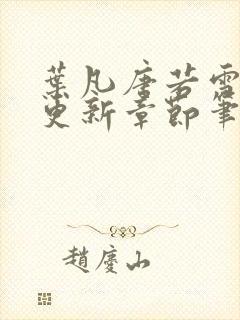 葉凡唐若雪
更新章節筆
趙慶山